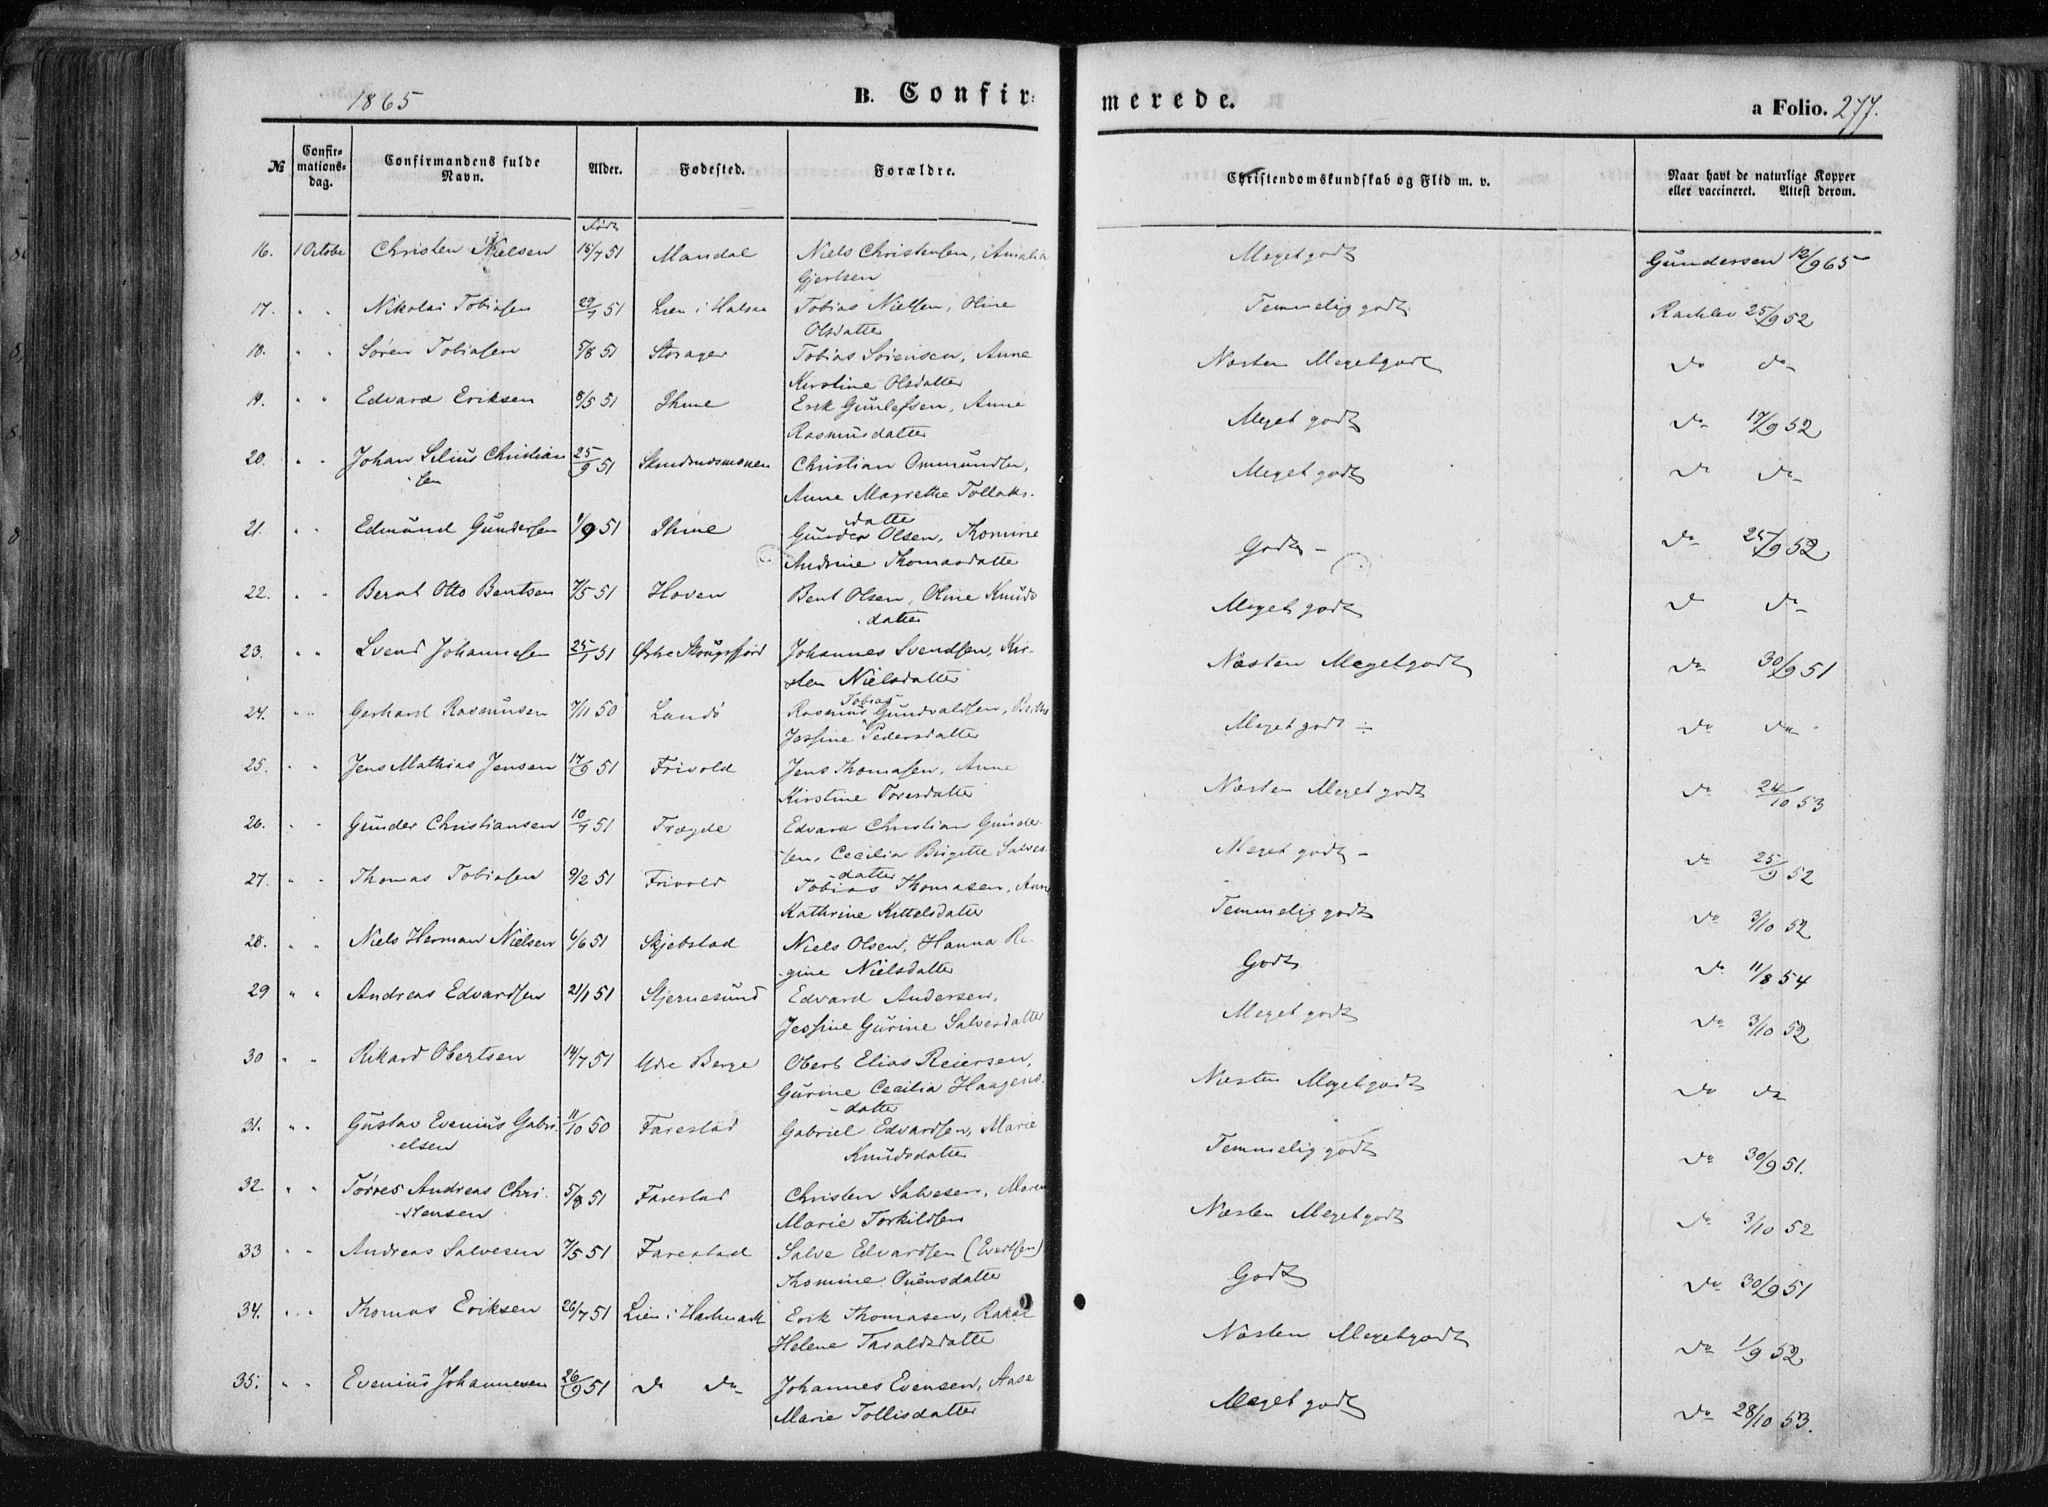 1865 B. Confir- merede. a Folio. 277.
№ Confir-mations-dag. Confirmandens fulde Navn. Alder. Fødested. Forældre. Christendomskundskab og Flid m. v. Naar havt de naturlige Kopper eller vaccineret. Attest derom.
Født
16. 1 Octobr Christen Nielsen 15/7 51 Mandal Niels Christensen, Amalia Meget godt Gundersen 12/9 65
Gjertsen
17. " " Nikolai Tobiasen 29/7 51 Lien i Halsaa Tobias Nielsen, Oline Temmelig godt 25/9 52
Olsdatter
18. " " Søren Tobiasen 5/8 51 Storager Tobias Sørensen, Anne Næsten Meget godt Do do
Kirstine Olsdatter
19. " " Edvard Eriksen 8/5 51 Ihme Erik Gunlefsen, Anne Meget godt Do 17/9 52
Rasmusdatter
20. " " Johan Silius Christian 25/9 51 Christian Ommundsen, Meget godt Do Do
sen Anne Mariethe Tollaks-
datter
21. " " Edmund Gundersen 1/9 51 Ihme Gunder Olsen, Komine Godt - Do 25/9 52
Andrine Thomasdatter
22. " " Bernt Otto Bentsen 7/5 51 Hoven Bent Olsen, Oline Knuds Meget godt Do Do
datter
23. " " Svend Johannesen 25/7 51 Østre Skougsfjord Johannes Svendsen, Kir- Næsten Meget godt Do 30/9 51
sten Nielsdatter
24. " " Gerhard Rasmusen 7/11 50 Landø Rasmus Tobias Gundvaldsen, Berthe Meget godt ÷ Do Do
Jossine Pedersdatter
25. " " Jens Mathias Jensen 17/6 51 Frivold Jens Thomasen, Anne Næsten Meget godt Do 24/10 53
Kirstine Toresdatter
26. " " Gunder Christiansen 10/7 51 Tregde Edvard Christian Gunder- Meget godt - Do 25/9 52
sen, Cecilia Birgitte Salves
datter
27. " " Thomas Tobiasen 9/2 51 Frivold Tobias Thomasen, Anne Temmelig godt Do 3/10 52
Kathrine Kittelsdatter
28. " " Niels Herman Nielsen 6/6 51 Skjebstad Niels Olsen, Hanna Re- Godt Do 11/8 54
gine Nielsdatter
29 " " Andreas Edvardsen 21/1 51 Stjernesund Edvard Andersen, Meget godt Do 3/10 52
Jessine Gurine Salvesdatter
30 " " Rikard Obertsen 14/7 51 Ydre Berge Obert Elias Reiersen, Næsten Meget godt Do do
Gurine Cecilia Haagens-
datter
31. " " Gustav Evenius Gabri 11/10 50 Farestad Gabriel Edvardsen, Marie Temmelig godt Do 30/9 51.
elsen Knudsdatter
32 " " Tørres Andreas Chri- 5/8 51 Farestad Christen Salvesen, Maren Næsten Meget godt Do 3/10 52
stensen Marie Torkildsen
33 " " Andreas Salvesen 7/5 51 Farestad Salve Edvardsen (Evertsen) Godt Do 30/9 51
Thomine Ouensdatter
34. " " Thomas Eriksen 26/7 51 Lien i Harkmark Erik Thomasen, Rakel Næsten Meget godt Do 1/9 52
Helene Taraldsdatter
35. " " Evenius Johannesen 26/9 51 Do Do Johannes Evensen, Aase Meget godt Do 28/10 53.
Marie Tollisdatter